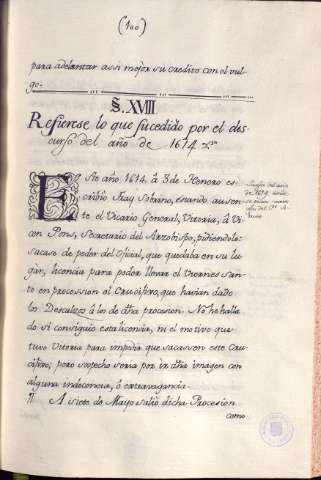 (100)
para adelantar assi mejor su credito con el vul-
go.
§. XVIII.
Refierese lo que sucedido por el des-
curso del año de 1614
Este año 1614. â 3 de Henero es-
cribio Fray Sobrino, estando ausen-
te el Vicario General, Vitoria, â Vi-
cen Pons, Secretario del Arzobispo, pidiendole
sacase de poder del Oficial, que quedaba en su lu-
gar, licencia para poder llevar el Viernes san-
to en procession al Crucifixo, que havian dado
los Descalzos â los de dha procesion. No he halla-
do si consiguio esta licencia, ni el motivo que
tuvo Vitoria para impedir que sacassen este Cru-
cifixo; pero sospecho seria por ir dha imagen con
alguna indecencia, ô extravagancia.
A siete de Mayo salio dicha Procesion
como